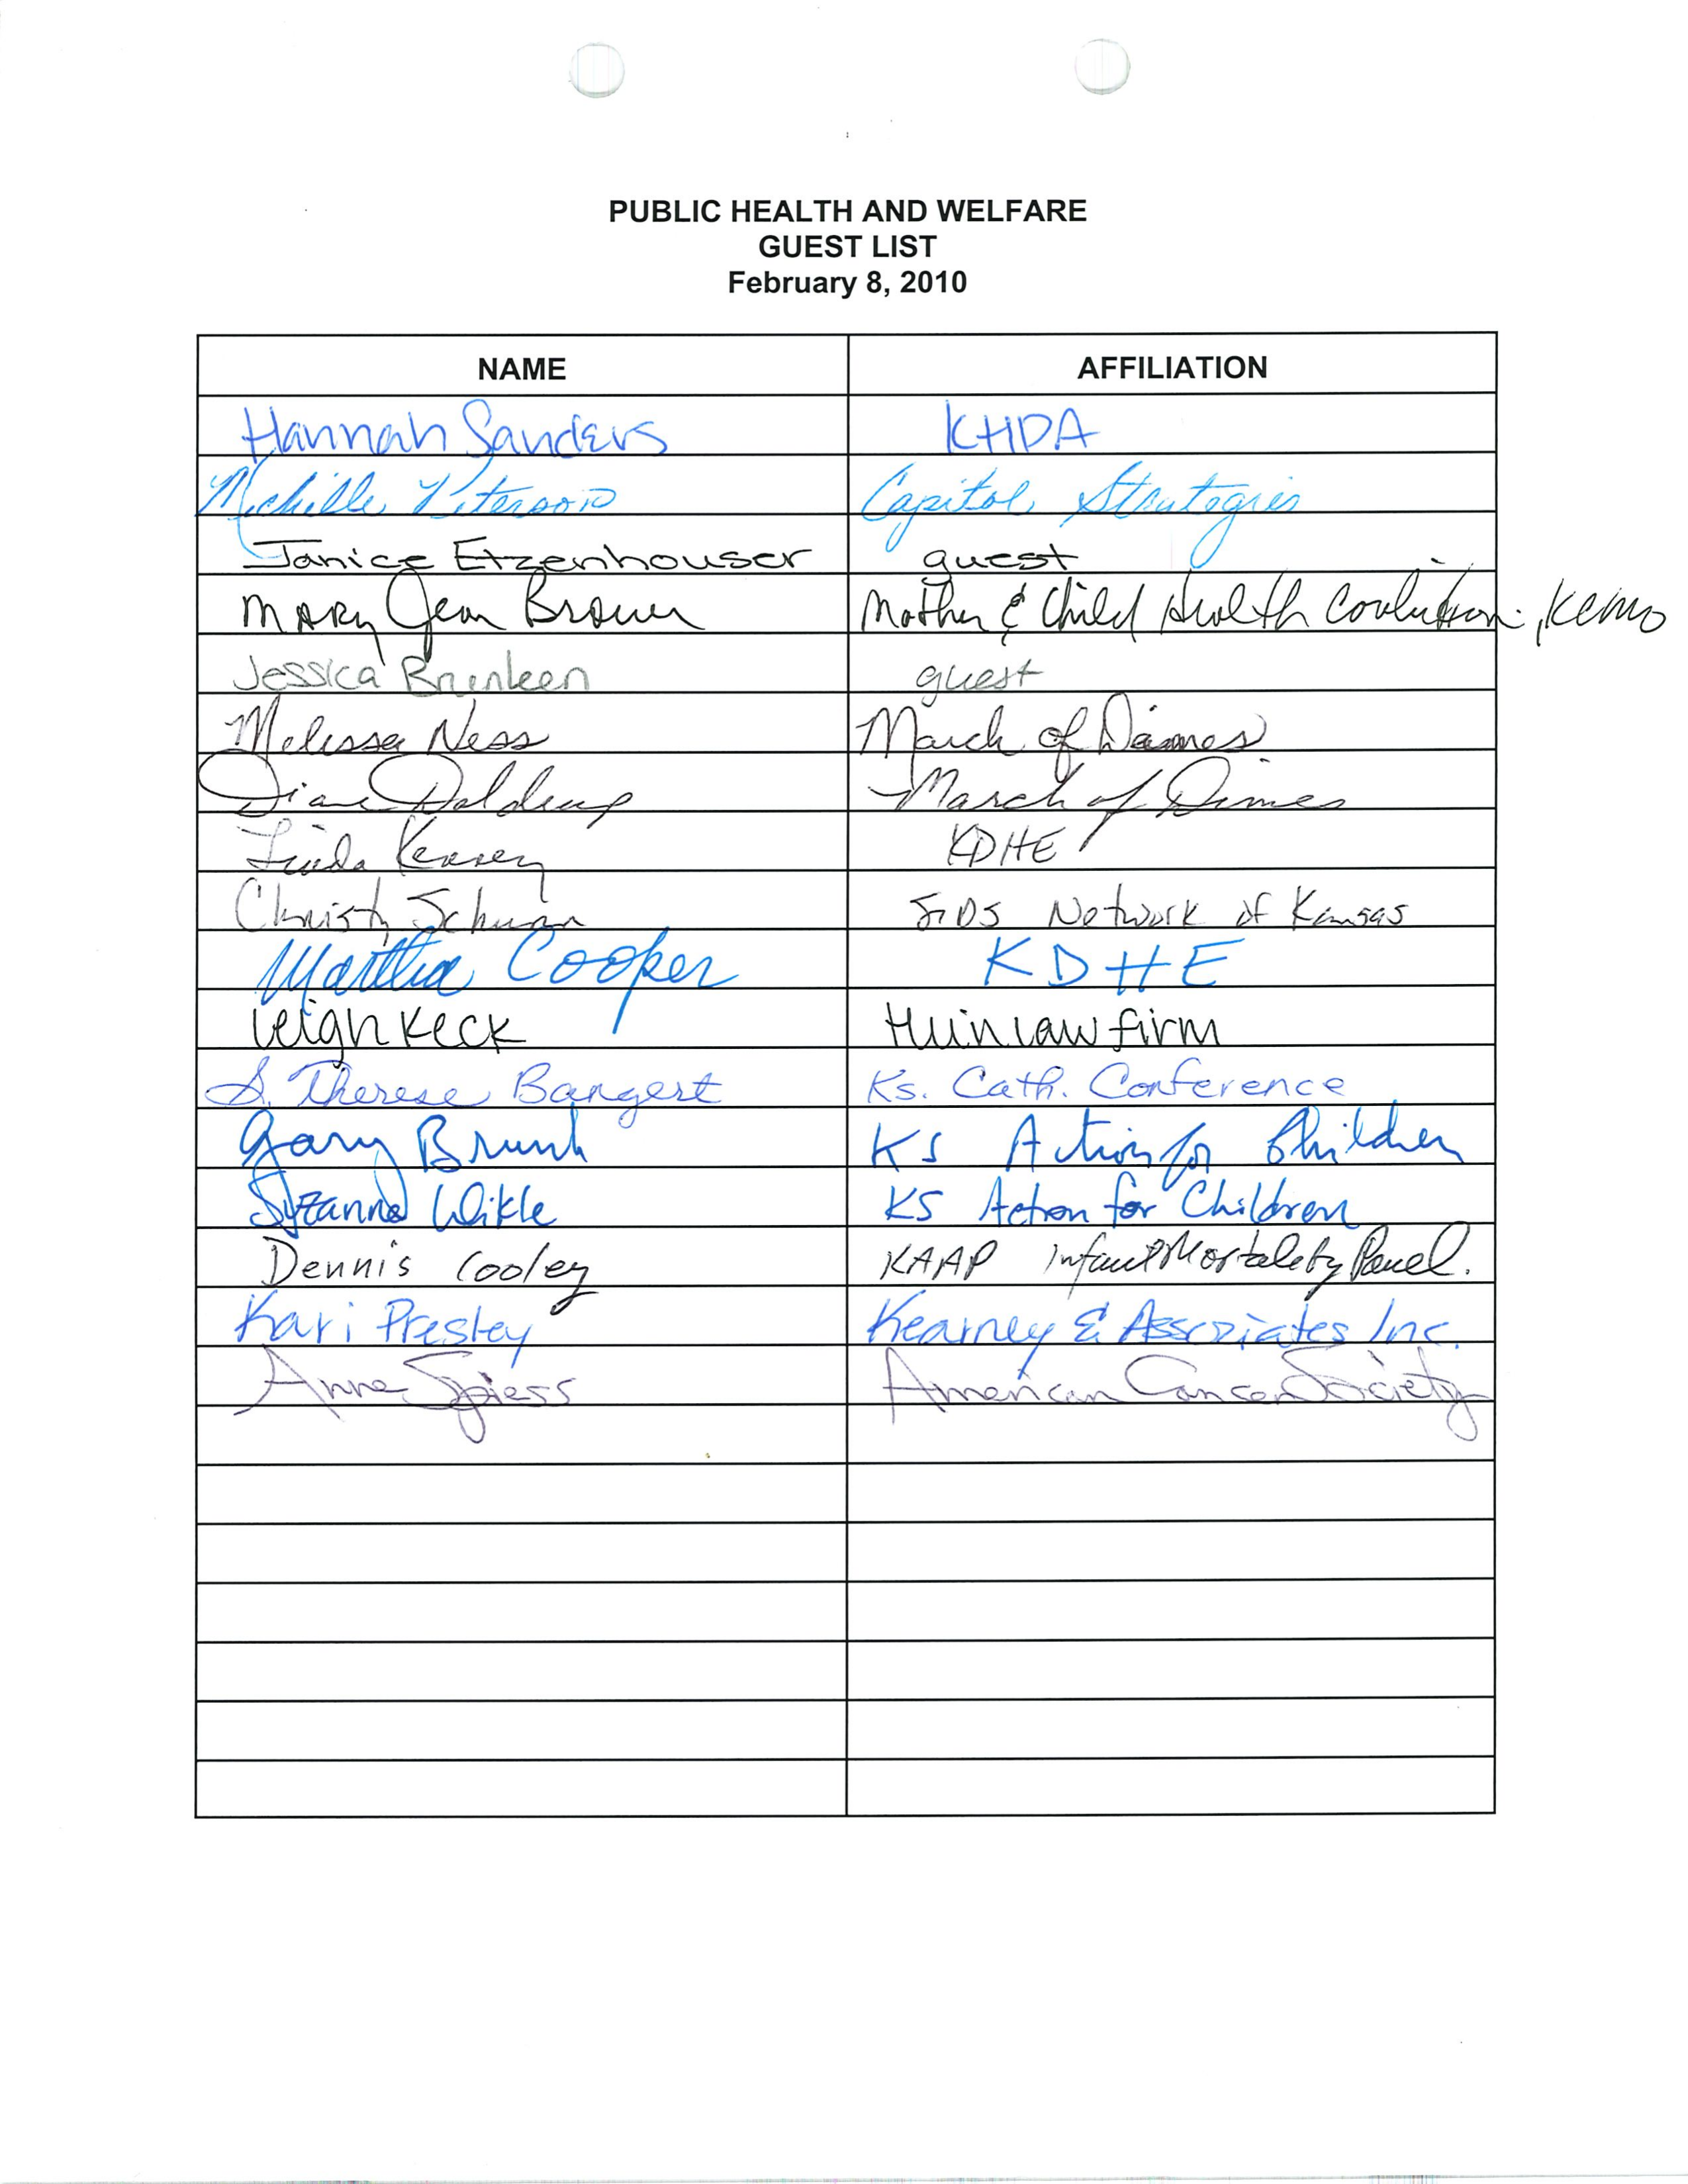 PUBLIC HEALTH AND WELFARE
GUEST LIST
February 8, 2010
NAME AFFILIATION
Hannah Sanders KHPA
Michelle Peterson Capitol Strategies
Janice Etzenhouser guest
Mary Jean Brown Mother & Child Health Coalition, KCMO
Jessica guest
Melissa Ness March of Dimes
Diane March of Dimes
Linda Kenney KDHE
Christy Schunn SIDS Network of Kansas
Martha Cooper KDHE
Leigh Keck Hein Law Firm
S. Therese Bangert Ks. Cath. Conference
Gary Brunk KS Action for Children
Suzanne Wikle KS Action for Children
Dennis Cooley KAAP Infant Mortality Panel.
Kari Presley Kearney & Associates Inc.
Anne Spiess American Cancer Society